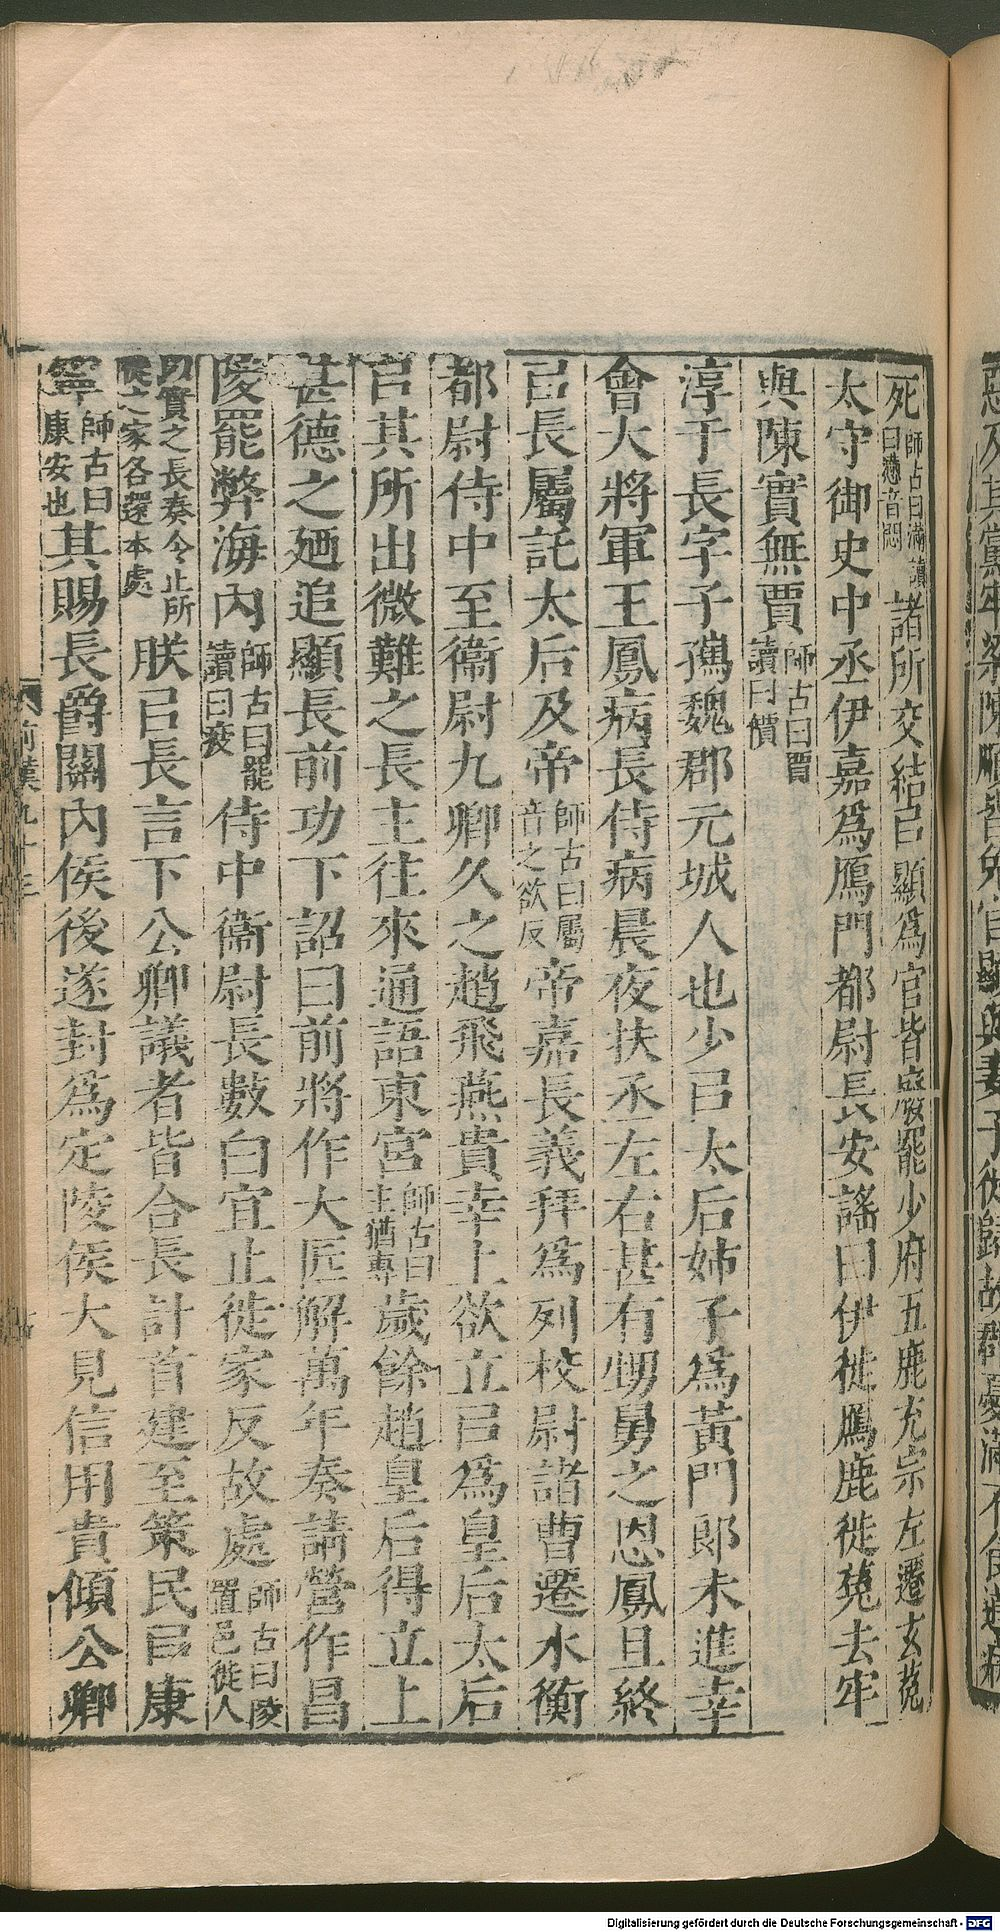 死師古曰滿讀曰懣音悶諸所交結㠯顯爲官皆廢罷少府五鹿充宗左遷玄菟
太守御史中丞伊嘉爲鴈門都尉長安謠曰伊徙鴈鹿徙菟去牢
與陳實無賈師古曰賈讀曰價
淳于長字子孺魏郡元城人也少㠯太后姊子爲黃門郎未進幸
會大將軍王鳳病長侍病晨夜扶丞左右甚有甥舅之恩鳳且終
㠯長屬託太后及帝師古曰屬音之欲反帝嘉長義拜爲列校尉諸曹遷水衡
都尉侍中至衞尉九卿久之趙飛燕貴幸上欲立㠯爲皇后太后
㠯其所出微難之長主往來通語東宮師古曰主猶專歲餘趙皇后得立上
甚德之廼追顯長前功下詔曰前將作大匠解萬年奏請營作昌
陵罷弊海內師古曰罷讀曰疲侍中衞尉長數白宜止徙家反故處師古曰陵置邑徙人
㠯實之長奏令止所徙之家各還本處朕㠯長言下公卿議者皆合長計首建至策民㠯康
寧師古曰康安也其賜長爵關內侯後遂封爲定陵侯大見信用貴傾公卿
前漢九十三
Digitalisierung gefördert durch die Deutsche Forschungsgemeinschaft - DFG